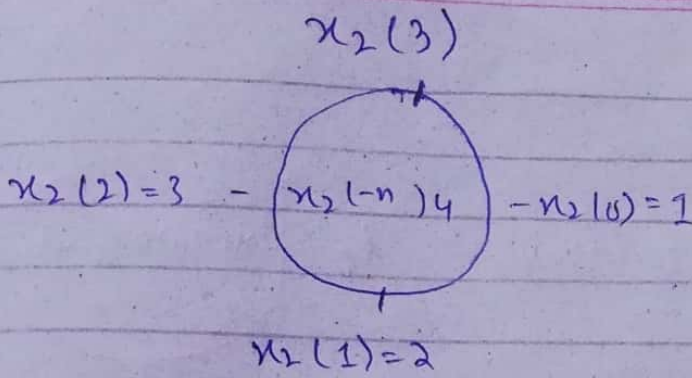 x₂(3)
x₂(2)=3 - x₂(-n)4 - x₂(0)=1
x₂(1)=2